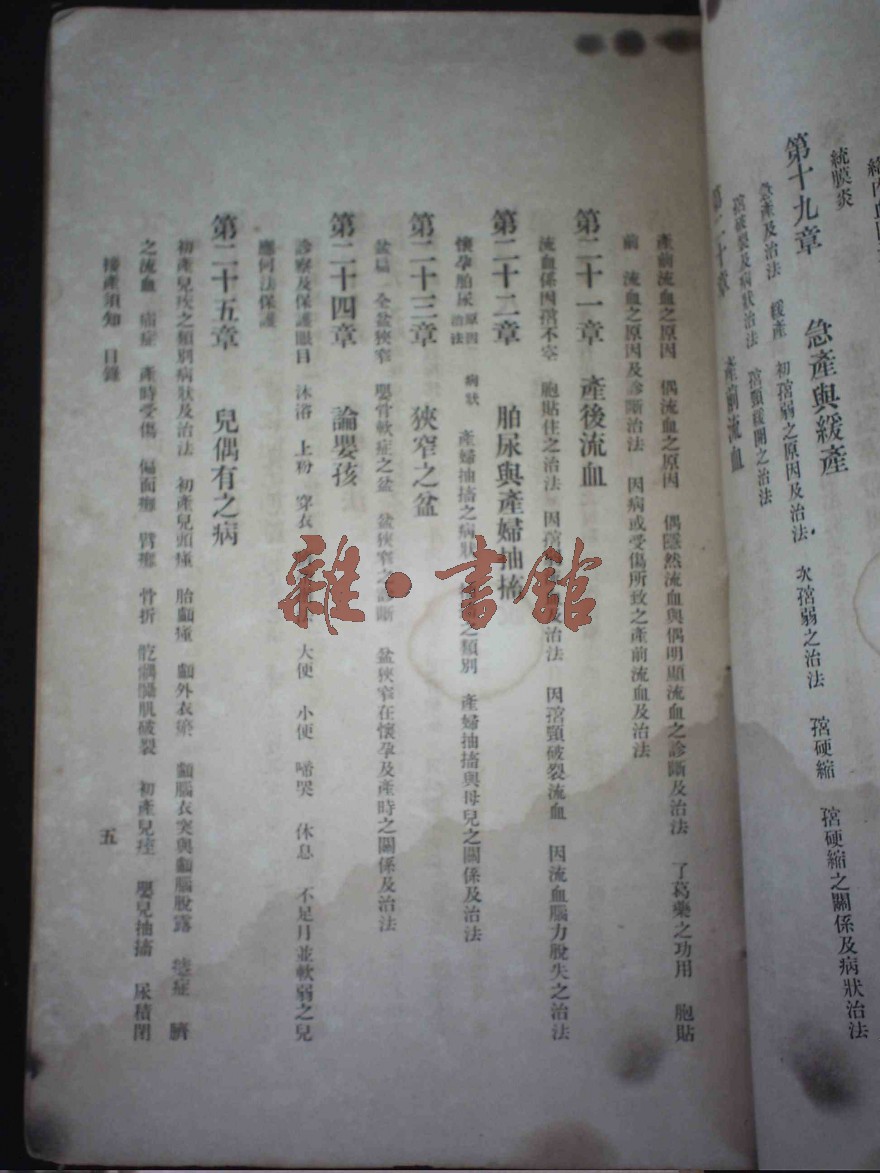 統膜炎
第十九章 急產與緩產
急產及治法 緩產 初㝃弱之原因及治法 次㝃弱之治法 㝃硬縮 㝃硬縮之關係及病狀治法
破裂及病狀治法 㝃頸緩開之治法
第二十章 產前流血
產前流血之原因 偶流血之原因 偶隱然流血與偶明顯流血之診斷及治法 了葛藥之功用 胞貼
前 流血之原因及診斷治法 因病或受傷所致之產前流血及治法
第二十一章 產後流血
流血係因㝃不 胞貼住之治法 因 及治法 因㝃頸破裂流血 因流血腦力脫失之治法
第二十二章 胎尿與產婦抽搐
懷孕胎尿 原因 治法 病狀 產婦抽搐之病狀 之類別 產婦抽搐與母兒之關係及治法
第二十三章 狹窄之盆
盆扁 全盆狹窄 嬰骨軟症之盆 盆狹窄之診斷 盆狹窄在懷孕及產時之關係及治法
第二十四章 論嬰孩
診察及保護眼目 沐浴 上粉 穿衣 大便 小便 啼哭 休息 不足月並軟弱之兒
應何法保護
第二十五章 兒偶有之病
初產兒疾之類別病狀及治法 初產兒頭瘇 胎顱瘇 顱外衣瘀 顱腦衣突與顱腦脫露 症 臍
之流血 痛症 產時受傷 偏面癱 臂癱 骨折 肌破裂 初產兒痙 嬰兒抽搐 尿積閉
接產須知 目錄
五
雜·書館